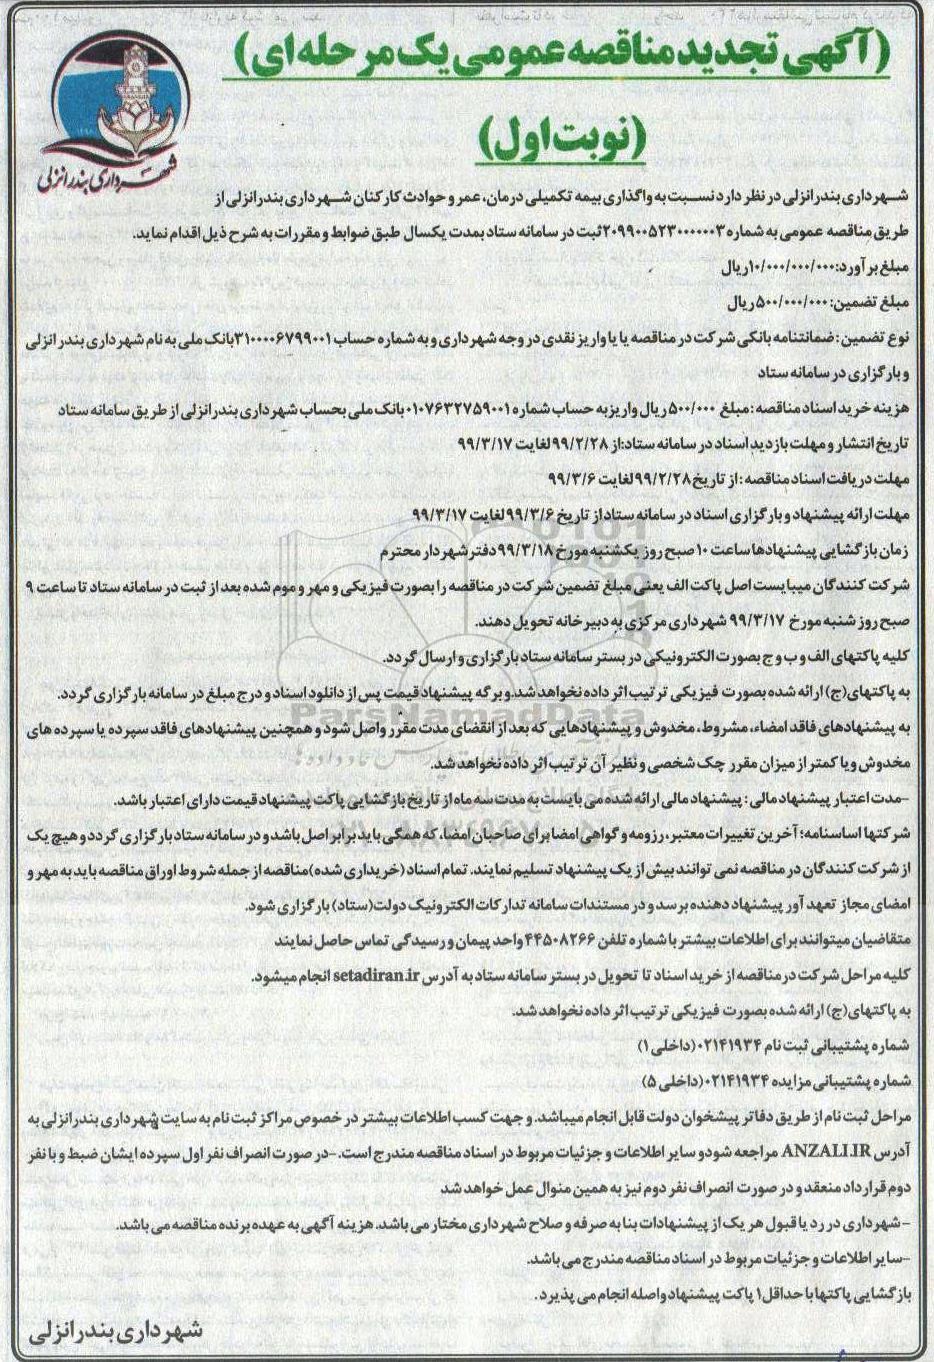 (آگهی تجدید مناقصه عمومی یک مرحله ای)
(نوبت اول)
شهرداری بندرانزلی
شهرداری بندرانزلی در نظر دارد نسبت به واگذاری بیمه تکمیلی درمان، عمر و حوادث کارکنان شهرداری بندرانزلی از
طریق مناقصه عمومی به شماره ۲۰۹۹۰۰۵۲۳۰۰۰۰۰۰۳ ثبت در سامانه ستاد بمدت یکسال طبق ضوابط و مقررات به شرح ذیل اقدام نماید.
مبلغ برآورد: ۱۰/۰۰۰/۰۰۰/۰۰۰ریال
مبلغ تضمین: ۵۰۰/۰۰۰/۰۰۰ ریال
نوع تضمین: ضمانتنامه بانکی شرکت در مناقصه یا یا واریز نقدی در وجه شهرداری و به شماره حساب ۳۱۰۰۰۰۶۷۹۹۰۰۱ بانک ملی به نام شهرداری بندر انزلی
و بارگزاری در سامانه ستاد
هزینه خرید اسناد مناقصه: مبلغ ۵۰۰/۰۰۰ ریال واریز به حساب شماره ۰۱۰۷۶۳۲۷۵۹۰۰۱ بانک ملی بحساب شهرداری بندرانزلی از طریق سامانه ستاد
تاریخ انتشار و مهلت بازدید اسناد در سامانه ستاد: از ۹۹/۲/۲۸ لغایت ۹۹/۳/۱۷
مهلت دریافت اسناد مناقصه: از تاریخ ۹۹/۲/۲۸ لغایت ۹۹/۳/۶
مهلت ارائه پیشنهاد و بارگزاری اسناد در سامانه ستاد از تاریخ ۹۹/۳/۶ لغایت ۹۹/۳/۱۷
زمان بازگشایی پیشنهادها ساعت ۱۰ صبح روز یکشنبه مورخ ۹۹/۳/۱۸ دفتر شهردار محترم
شرکت کنندگان میبایست اصل پاکت الف یعنی مبلغ تضمین شرکت در مناقصه را بصورت فیزیکی و مهر و موم شده بعد از ثبت در سامانه ستاد تا ساعت ۹
صبح روز شنبه مورخ ۹۹/۳/۱۷ شهرداری مرکزی به دبیرخانه تحویل دهند.
کلیه پاکتهای الف و ب و ج بصورت الکترونیکی در بستر سامانه ستاد بارگزاری و ارسال گردد.
به پاکتهای (ج) ارائه شده بصورت فیزیکی ترتیب اثر داده نخواهد شد. و برگه پیشنهاد قیمت پس از دانلود اسناد و درج مبلغ در سامانه بارگزاری گردد.
به پیشنهادهای فاقد امضاء، مشروط، مخدوش و پیشنهادهایی که بعد از انقضای مدت مقرر واصل شود و همچنین پیشنهادهای فاقد سپرده یا سپرده های
مخدوش و یا کمتر از میزان مقرر چک شخصی و نظیر آن ترتیب اثر داده نخواهد شد.
-مدت اعتبار پیشنهاد مالی: پیشنهاد مالی ارائه شده می بایست به مدت سه ماه از تاریخ بازگشایی پاکت پیشنهاد قیمت دارای اعتبار باشد.
شرکتها اساسنامه؛ آخرین تغییرات معتبر، رزومه و گواهی امضا برای صاحبان امضا، که همگی باید برابر اصل باشد و در سامانه ستاد بارگزاری گردد و هیچ یک
از شرکت کنندگان در مناقصه نمی توانند بیش از یک پیشنهاد تسلیم نمایند. تمام اسناد (خریداری شده) مناقصه از جمله شروط اوراق مناقصه باید به مهر و
امضای مجاز تعهد آور پیشنهاد دهنده برسد و در مستندات سامانه تدارکات الکترونیک دولت (ستاد) بارگزاری شود.
متقاضیان میتوانند برای اطلاعات بیشتر با شماره تلفن ۴۴۵۰۸۲۶۶ واحد پیمان و رسیدگی تماس حاصل نمایند
کلیه مراحل شرکت در مناقصه از خرید اسناد تا تحویل در بستر سامانه ستاد به آدرس setadiran.ir انجام میشود.
به پاکتهای (ج) ارائه شده بصورت فیزیکی ترتیب اثر داده نخواهد شد.
شماره پشتیبانی ثبت نام ۰۲۱۴۱۹۳۴ (داخلی ۱)
شماره پشتیبانی مزایده ۰۲۱۴۱۹۳۴ (داخلی ۵)
مراحل ثبت نام از طریق دفاتر پیشخوان دولت قابل انجام میباشد. و جهت کسب اطلاعات بیشتر در خصوص مراکز ثبت نام به سایت شهرداری بندرانزلی به
آدرس ANZALI.IR مراجعه شود و سایر اطلاعات و جزئیات مربوط در اسناد مناقصه مندرج است. -در صورت انصراف نفر اول سپرده ایشان ضبط و با نفر
دوم قرارداد منعقد و در صورت انصراف نفر دوم نیز به همین منوال عمل خواهد شد
-شهرداری در رد یا قبول هر یک از پیشنهادات بنا به صرفه و صلاح شهرداری مختار می باشد. هزینه آگهی به عهده برنده مناقصه می باشد.
-سایر اطلاعات و جزئیات مربوط در اسناد مناقصه مندرج می باشد.
بازگشایی پاکتها با حداقل ۱ پاکت پیشنهاد واصله انجام می پذیرد.
شهرداری بندر انزلی
ParsNamadData